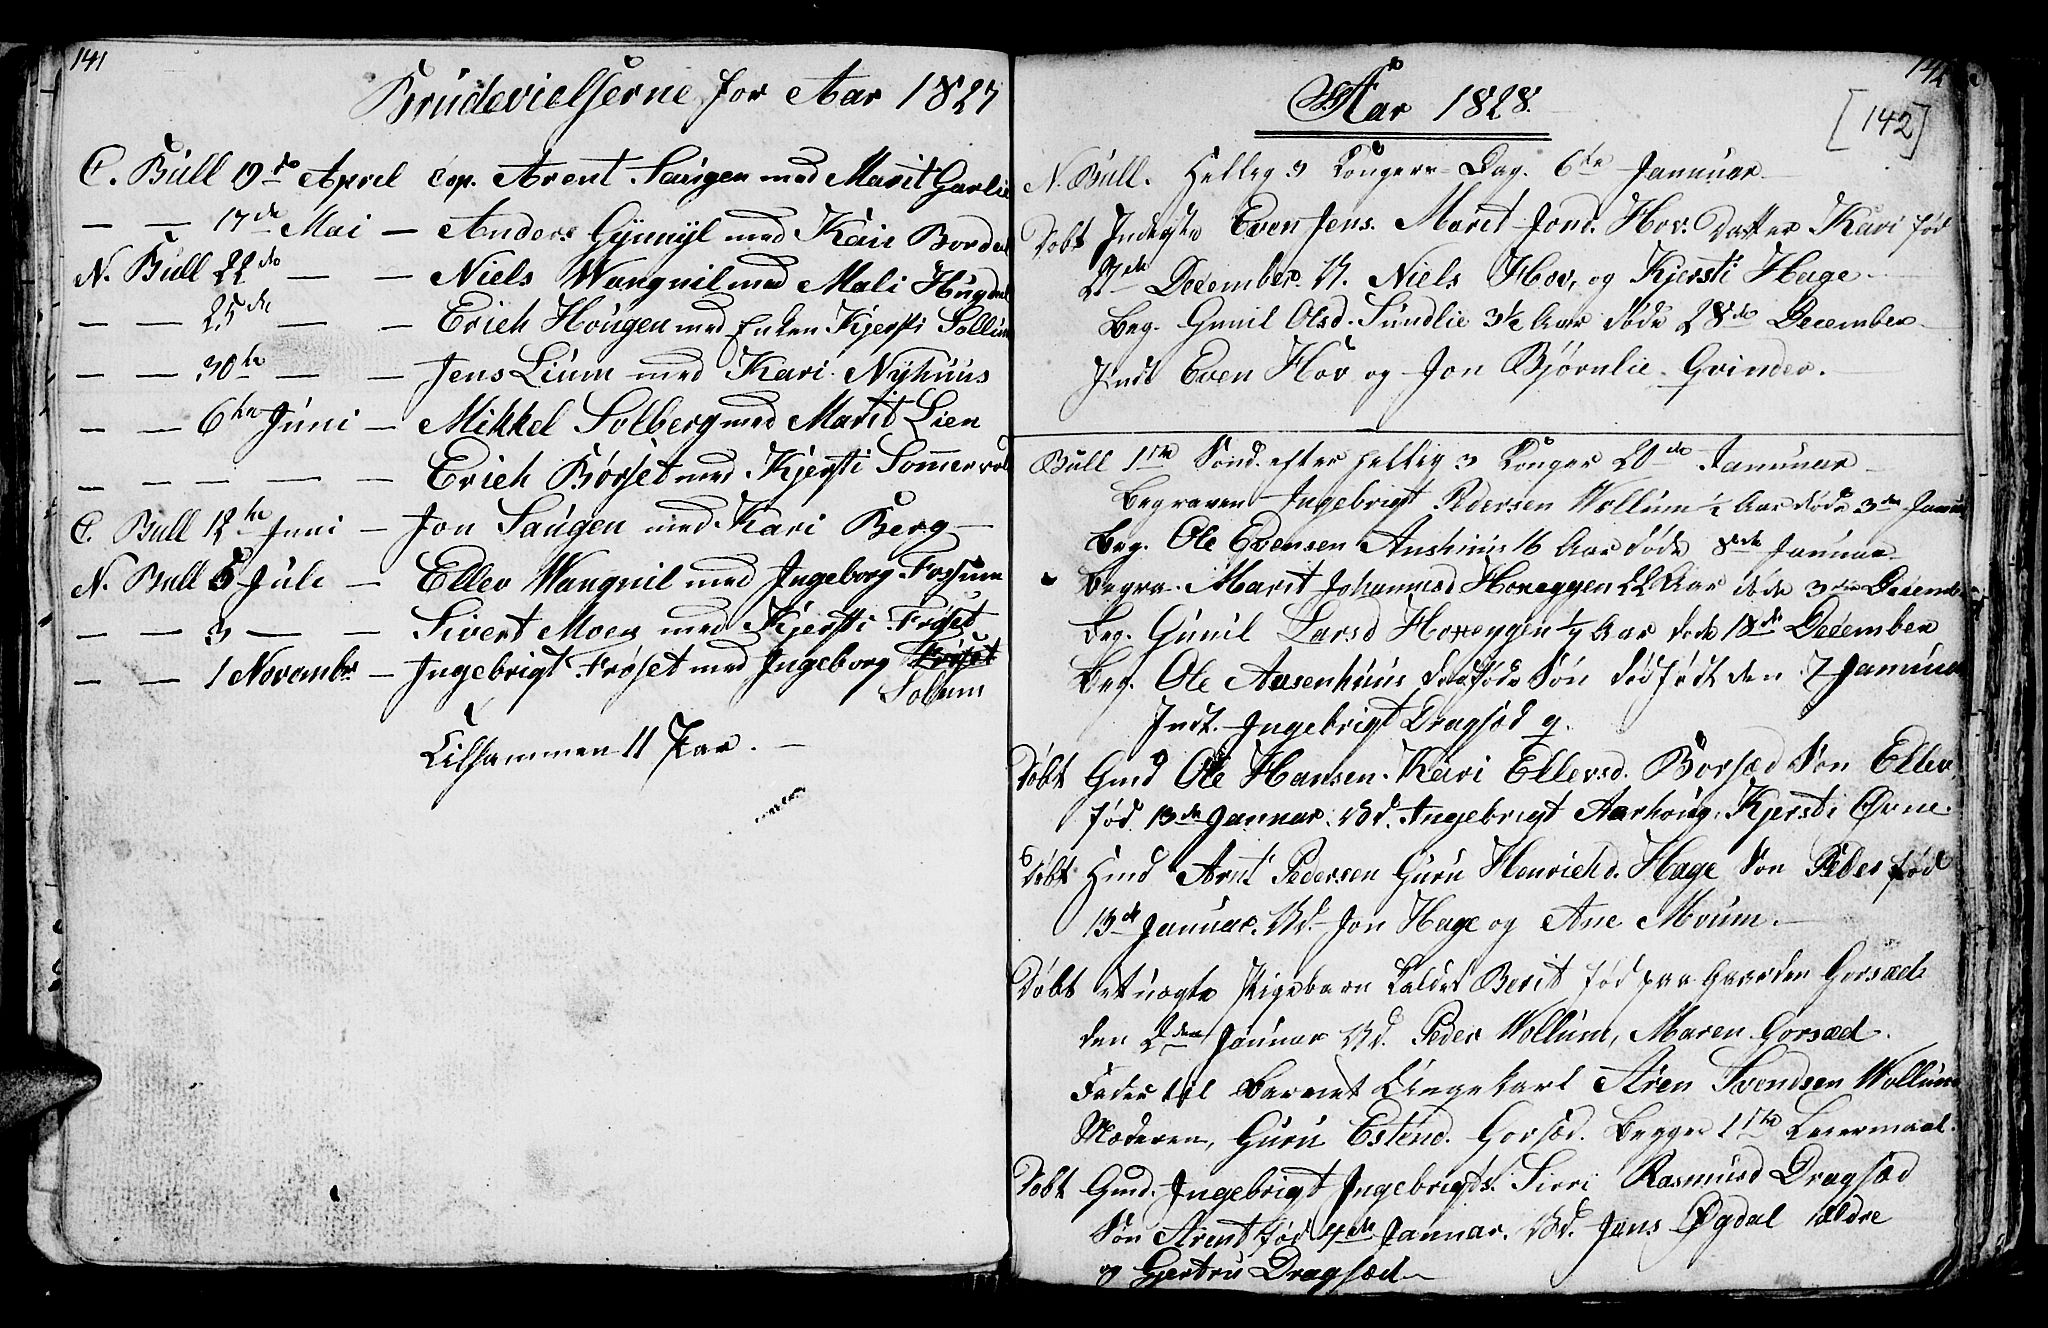 141
Brudevielserne for Aar 1827
C. Bull 19de Aprel Cop. Arent Saugen med Marit Garlie
— — 17de Mai — Anders Gynnyl med Kari Bordal
N. Bull 22de — — Niels Wangnil med Mali Hugdal
— — 25de — — Erich Hougen med Enken Kjersti Sollum
— — 30te — — Jens Lium med Kari Nyhuus
— — 6te Juni — Mikkel Solberg med Marit Lien
— — — — — Erich Børset med Kjersti Sommervold
C. Bull 12te Juni — Jon Saugen med Kari Berg —
N. Bull 3 Juli — Ellev Wangnil med Ingeborg Fossum
— — 3 — — Sivert Moen med Kjersti Frøset
— — 1 Novembr — Ingebrigt Frøset med Ingeborg Frøset
Solem
Tilsammen 11 Par. —
142
[142]
Aar 1828.
N. Bull. Hellig 3 Kongers Dag. 6te Januar
Døbt Inderste Even Jens. Marit Jond. Hov. Datter Kari fød
27de December. V. Niels Hov, og Kjersti Hage
Beg. Gunil Olsd. Sundlie 3½ Aar døde 28de December.
Indt. Even Hov og Jon Bjørnlie Qvinder.
Bull 1ste Sønd. efter Hellig 3 Konger 20de Januar
Begraven Ingebrigt Pedersen Wollum ½ Aar døde 3de Januar
Beg. Ole Evensen Aushuus 16 Aar døde 8de Januar
Begra. Marit Johannesd Honeggen 22 Aar døde 3die December
Beg. Gunil Larsd Honeggen ¼ Aar døde 18de December
Beg. Ole Aasenhuus dødfødt Søn dødfødt den 7 Januar
Indt. Ingebrigt Dragsæd q.
Døbt Gmd Ole Hansen. Kari Ellevsd. Borsæd Søn Ellev
fød 13de Januar. Vd. Ingebrigt Aarhoug, Kjersti Øvne.
Døbt Hmd Arnt Pedersen Guru Henrichd. Hage Søn Peder fød
13de Januar. Vd. Jon Hage og Ane Moum. —
Døbt et uægte Pigebarn kaldet Berit fød paa Gaarden Gorsæd
den 2den Januar Vd. Peder Wollum, Maren Gorsæd.
Fader til Barnet Ungekarl Aren Svendsen Wollum
Moderen, Guru Estend. Gorsæd. Begges 1ste Leiermaal.
Døbt Gmd. Ingebrigt Ingebrigts. Sirri Rasmusd Dragsæd
Søn Arent fød 4de Januar. Vd. Jens Øgdal ældre
og Gjertru Dragsæd